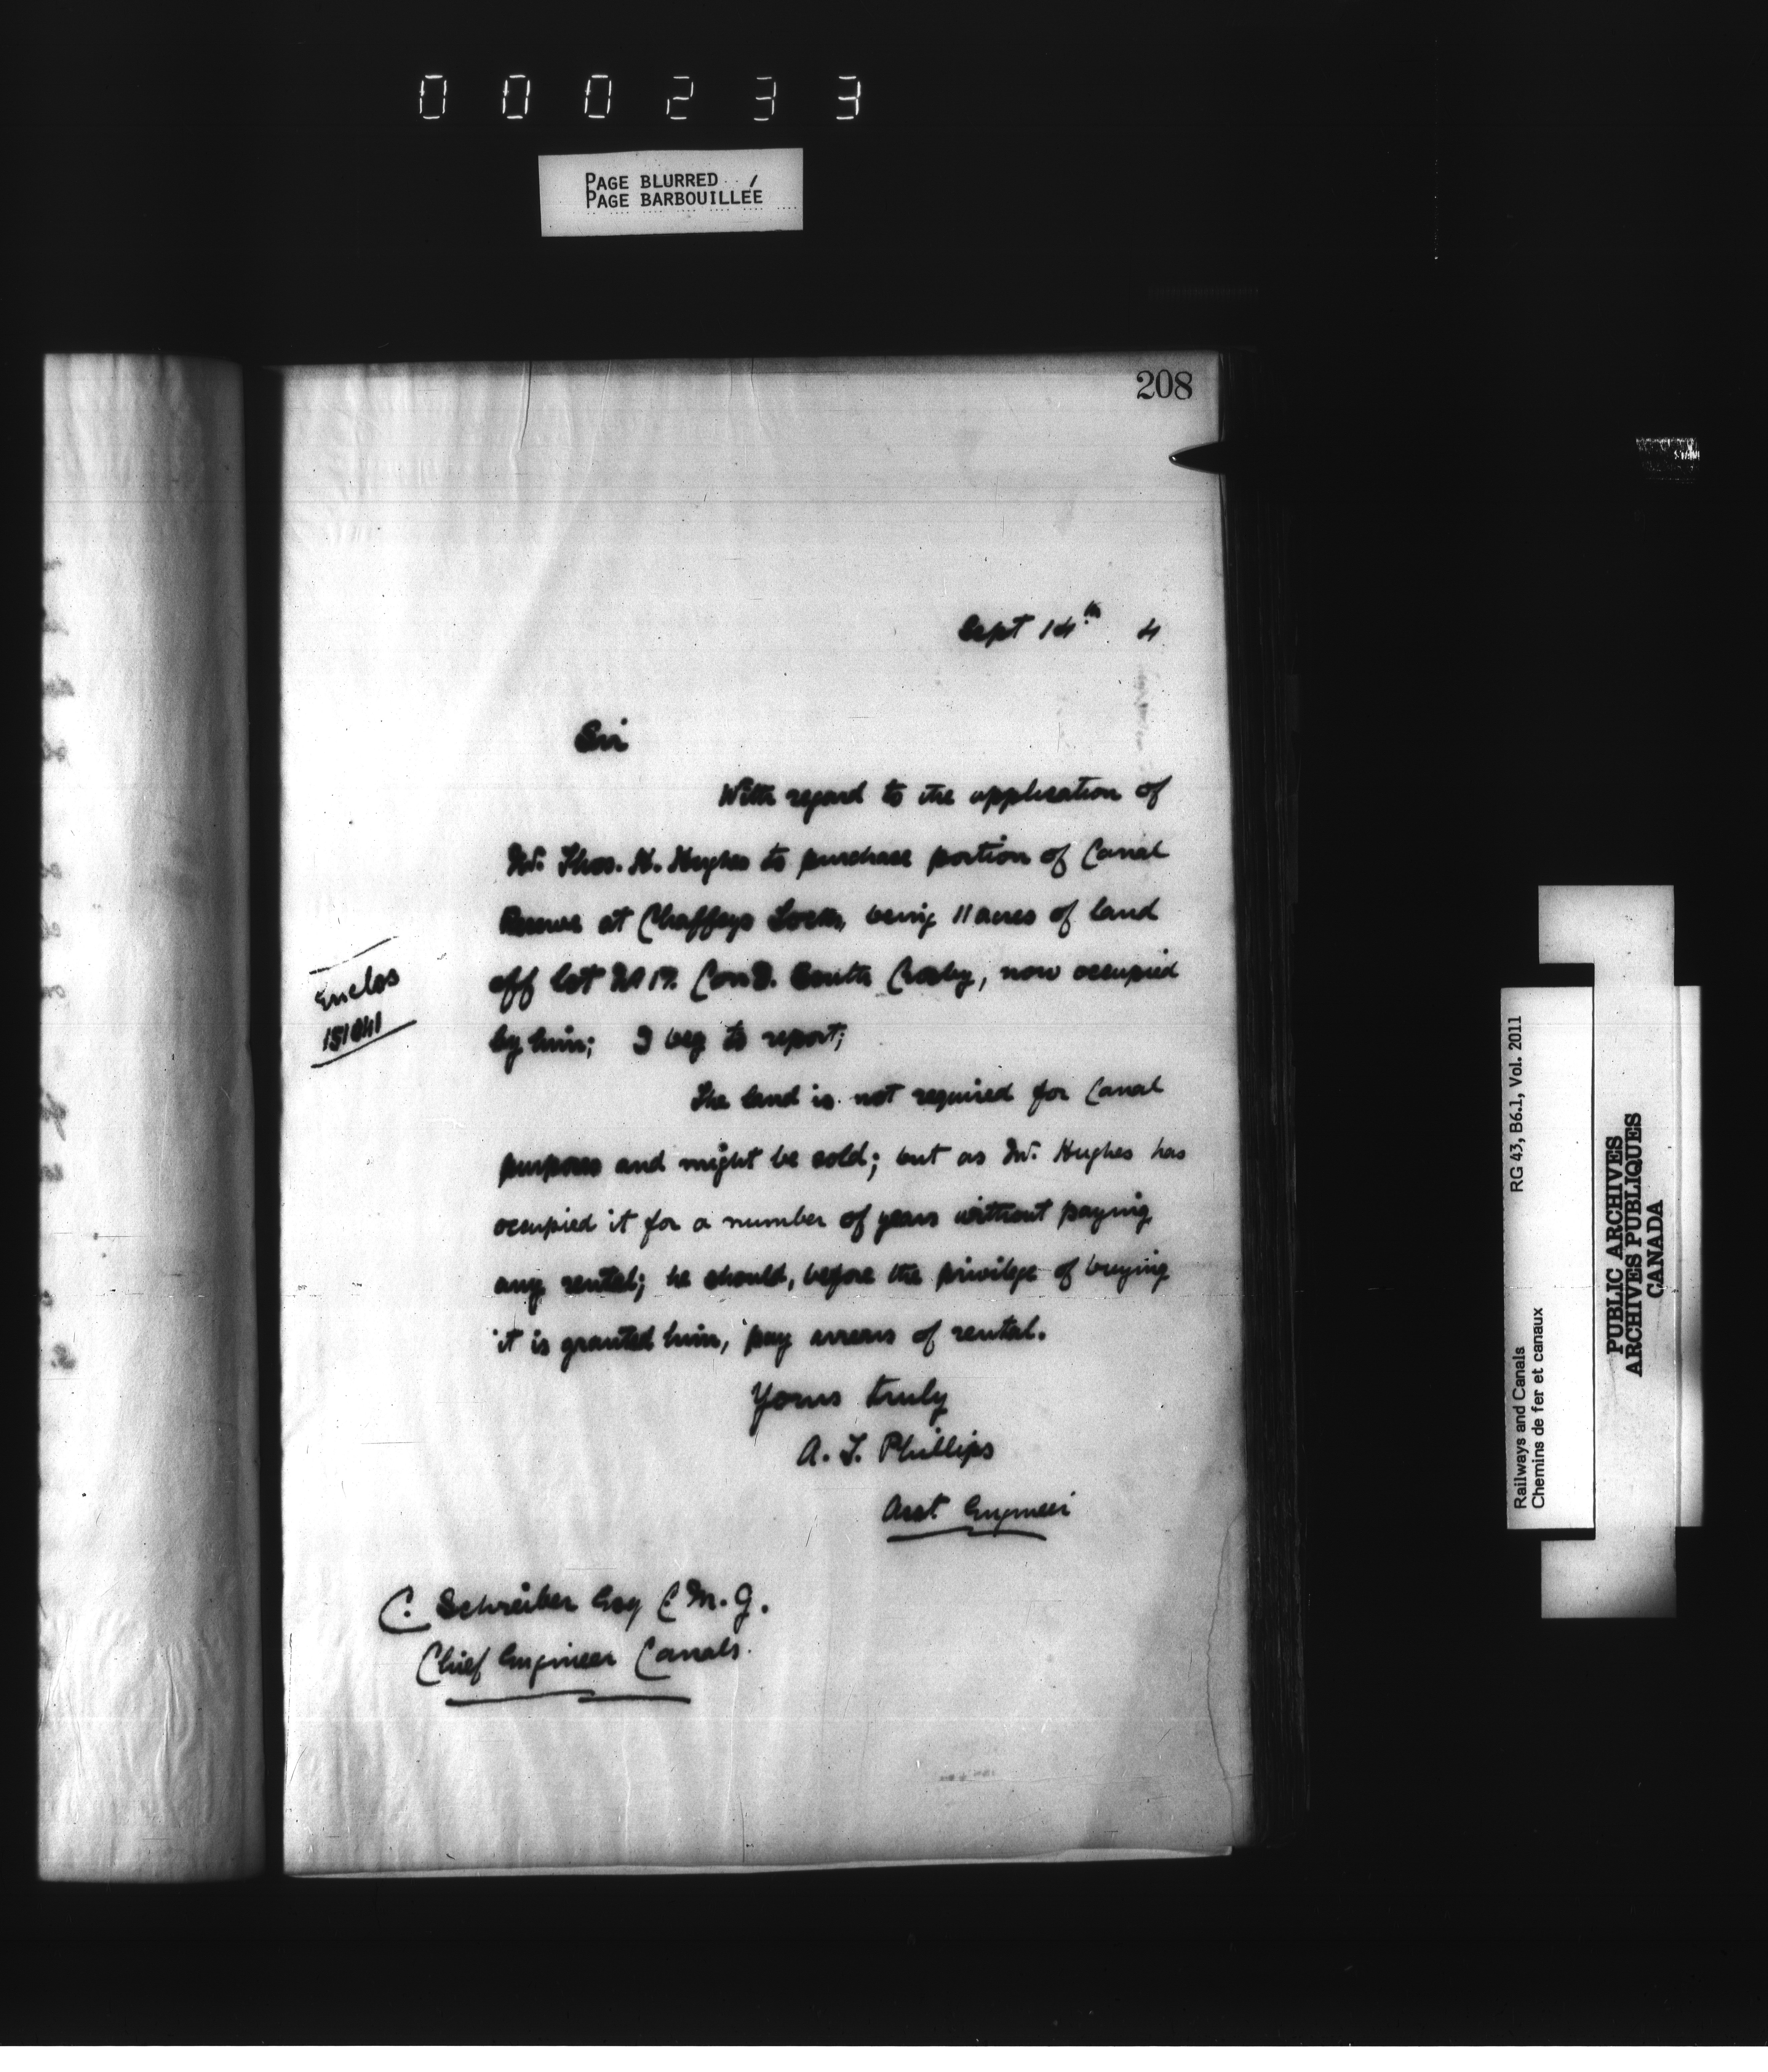 000233
PAGE BLURRED
PAGE BARBOUILLÉE
208
Sept 14th 4
Sir
With regard to the application of
Mr. Thos. H. Hughes to purchase portion of Canal
Reserve at Chaffeys Locks, being 11 acres of land
off lot No 17. Con South Crosby, now occupied
by him; I beg to report;
Enclos
The land is not required for Canal
purposes and might be sold; but as Mr. Hughes has
occupied it for a number of years without paying
any rental; he should, before the privilege of buying
it is granted him, pay arrears of rental.
Yours truly
A. T. Phillips
Asst Engineer
C. Schreiber Esq C.M.G.
Chief Engineer Canals.
Railways and Canals RG 43, B6.1, Vol. 2011
Chemins de fer et canaux
PUBLIC ARCHIVES
ARCHIVES PUBLIQUES
CANADA